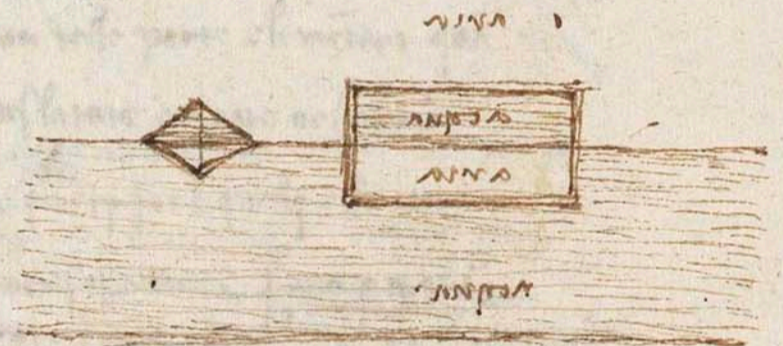 aria
acqua
aria
acqua